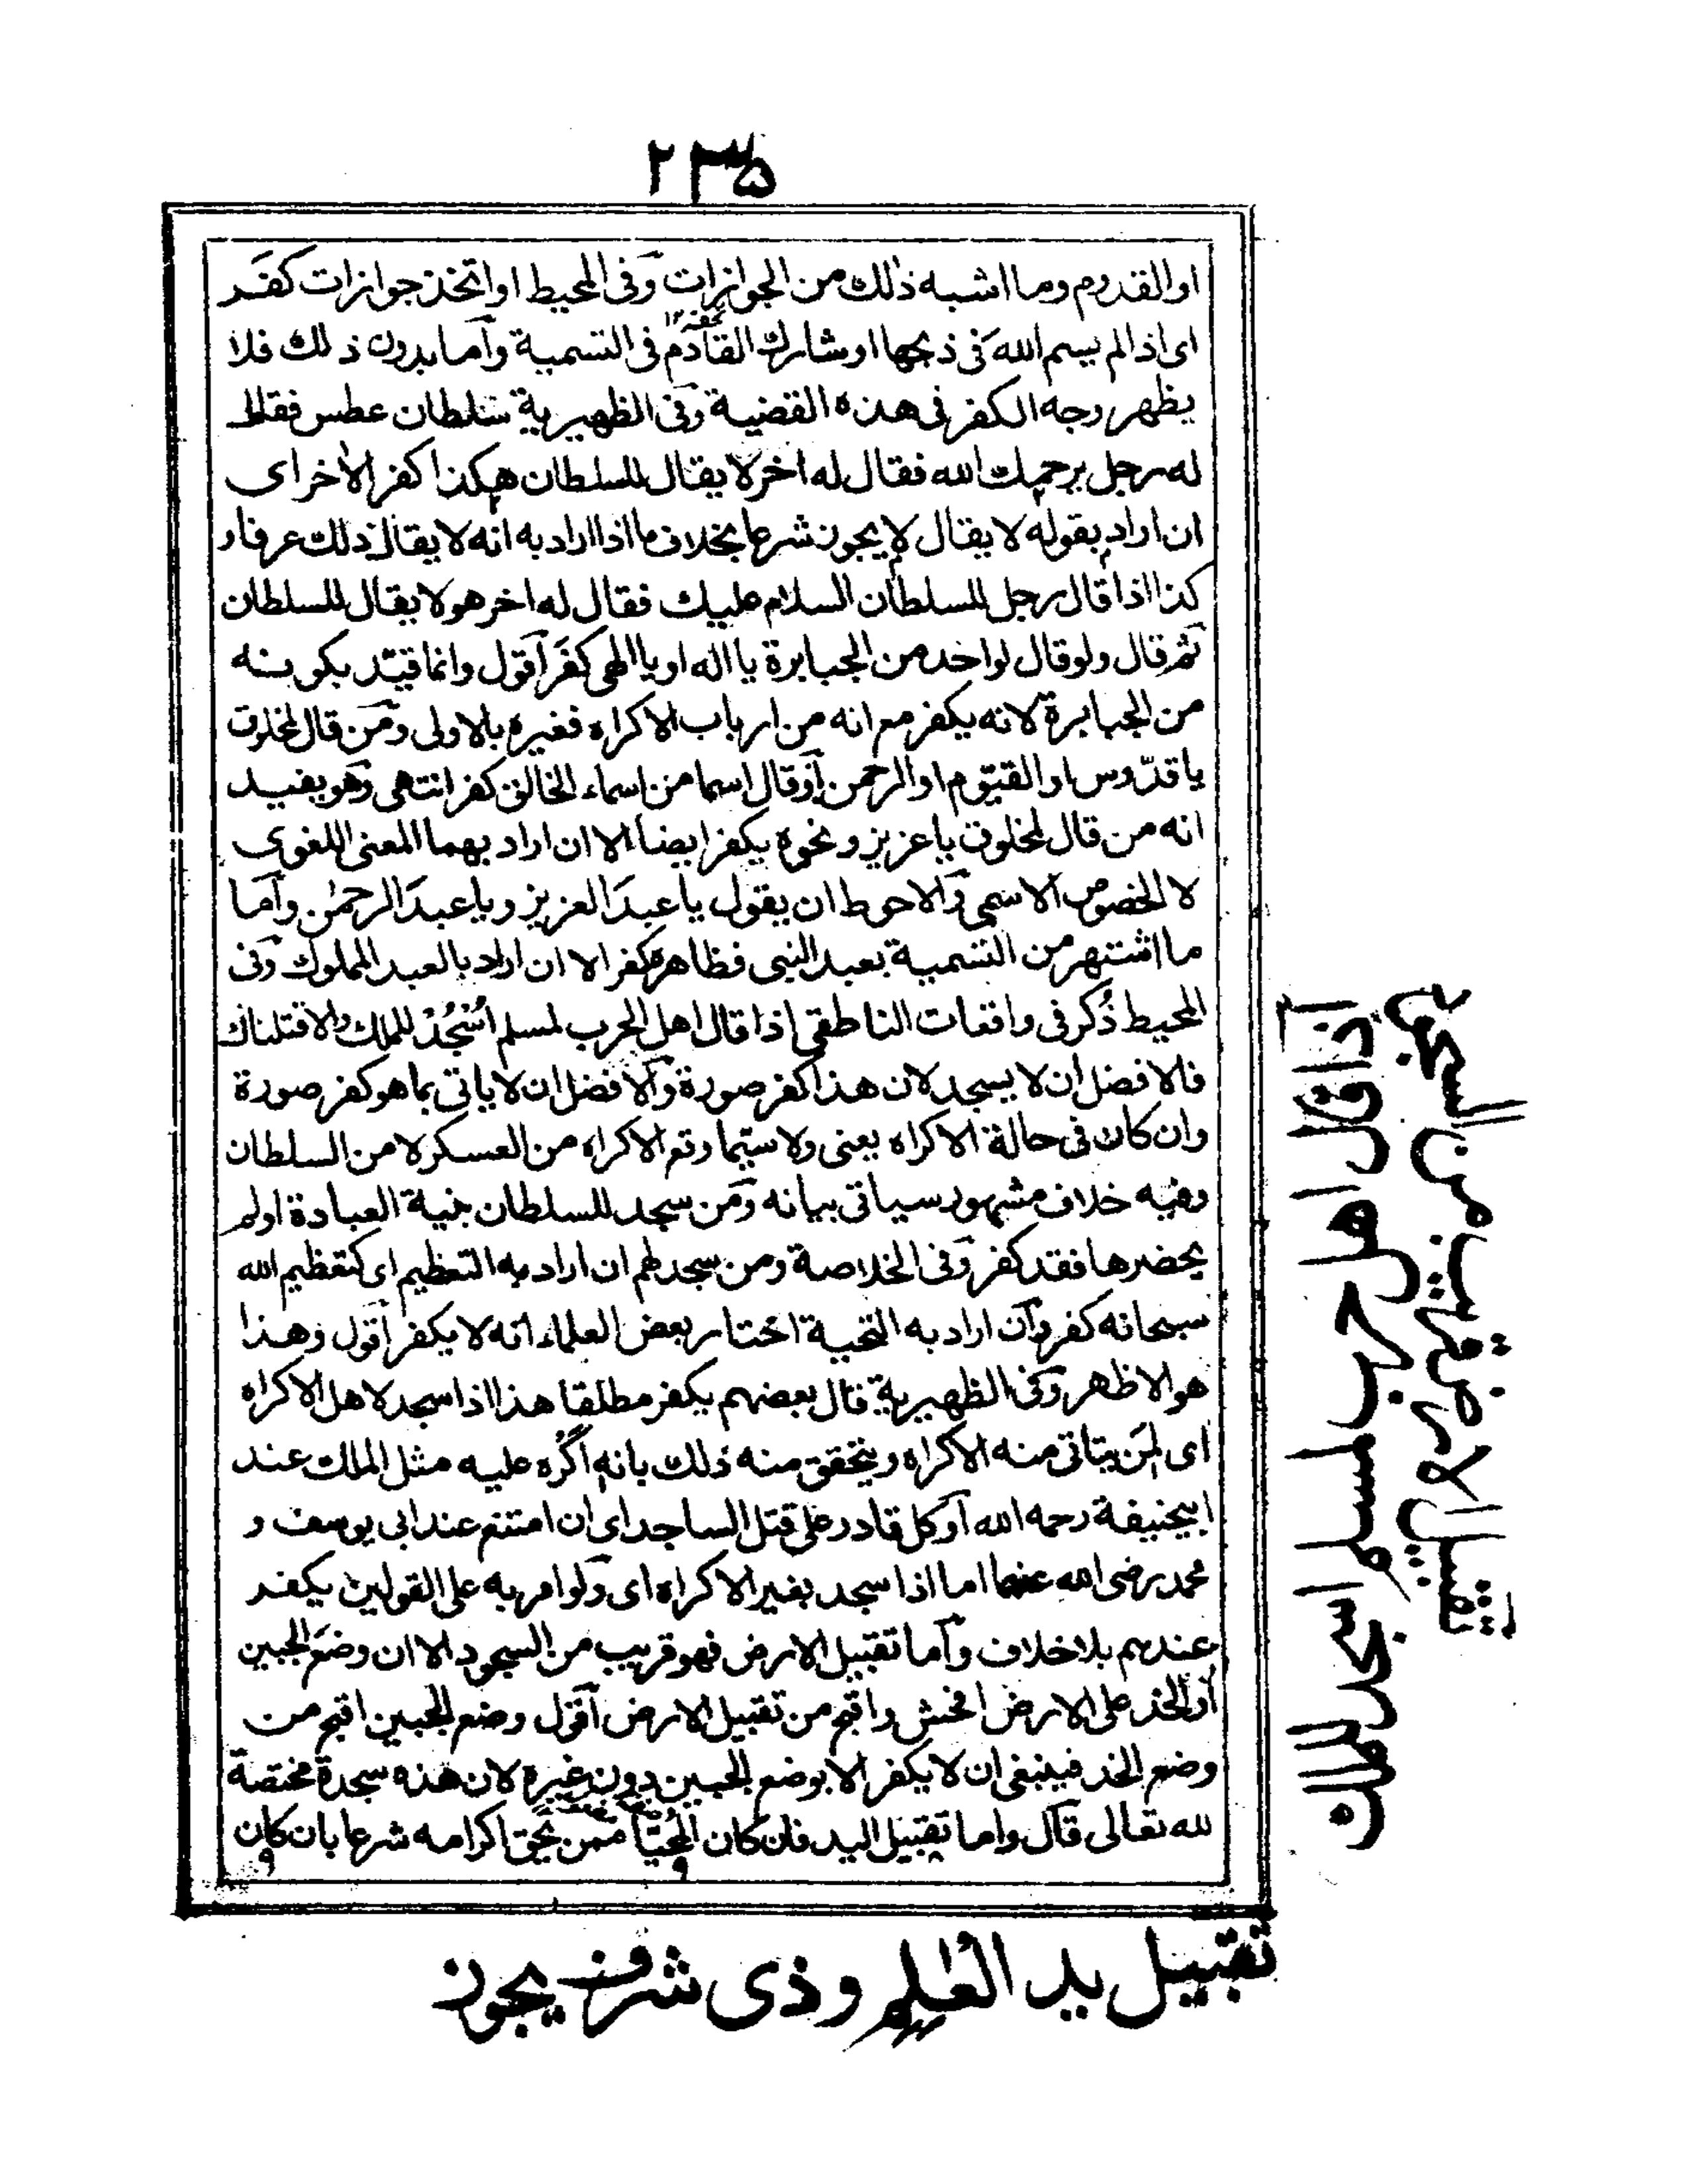 ٢٣۵
او القدوم وما اشبه ذلك من الجوازات وفى المحيط او اتخذ جوازات كفر
اى اذا لم يسم الله فى ذبحها او شارك القادم فى التسمية واما بدون ذلك فلا
يظهر وجه الكفر فى هذه القضية وفى الظهيرية سلطان عطس فقال
له رجل يرحمك الله فقال له اخر لا يقال للسلطان هكذا كفر الاخر اى
ان اراد بقوله لا يقال لا يجوز شرعا بخلاف ما اذا اراد به انه لا يقال ذلك عرفا و
كذا اذا قال رجل للسلطان السلام عليك فقال له اخر هو لا يقال للسلطان
ثم قال ولو قال لواحد من الجبابرة يا اله او يا الهى كفر اقول وانما قيّد بكونه
من الجبابرة لانه يكفر مع انه من ارباب الاكراه فغيره بالاولى ومن قال لمخلوق
يا قدّوس او القيّوم او الرحمن او قال اسما من اسماء الخالق كفر انتهى وهو يفيد
انه من قال لمخلوق يا عزيز ونحوه يكفر ايضا الا ان اراد بهما المعنى اللغوى
لا الخصوص الاسمى والاحوط ان يقول يا عبد العزيز ويا عبد الرحمٰن واما
ما اشتهر من التسمية بعبد النبى فظاهره كفر الا ان اراد بالعبد المملوك وفى
المحيط ذُكر فى واقعات الناطفى اذا قال اهل الحرب لمسلم اُسْجُدْ للملك والا قتلناك
فالافضل ان لا يسجد لان هذا كفر صورة والافضل ان لا ياتى بما هو كفر صورة
وان كان فى حالة الاكراه يعنى ولا سيّما وقع الاكراه من العسكر لا من السلطان
وفيه خلاف مشهور سياتى بيانه ومن سجد للسلطان بنية العبادة او لم
يحضرها فقد كفر وفى الخلاصة ومن سجد لهم ان اراد به التعظيم اى كتعظيم الله
سبحانه كفر وان اراد به التحية اختار بعض العلماء انه لا يكفر اقول وهذا
هو الاظهر وفى الظهيرية قال بعضهم يكفر مطلقا هذا اذا سجد لاهل الاكراه
اى لمن يتاتى منه الاكراه ويتحقق منه ذلك بانه اكره عليه مثل الملك عند
ابيحنيفة رحمه الله او كل قادر على قتل الساجد اى ان امتنع عند ابى يوسف و
محمد رضى الله عنهما اما اذا سجد بغير الاكراه اى ولو امر به على القولين يكفر
عندهم بلا خلاف واما تقبيل الارض فهو قريب من السجود الا ان وضع الجبين
او الخد على الارض افحش واقبح من تقبيل الارض اقول وضع الجبين اقبح من
وضع الخد فينبغى ان لا يكفر الا بوضع الجبين دون غيره لان هذه سجدة مختصة
لله تعالى قال واما تقبيل اليد فان كان المحيّا ممن يحق اكرامه شرعا بان كان
اذا قال اهل حرب لمسلم اسجد للملك
تقبيل الارض قريب من السجود
تقبيل يد العٰلم وذى شرف يجوز